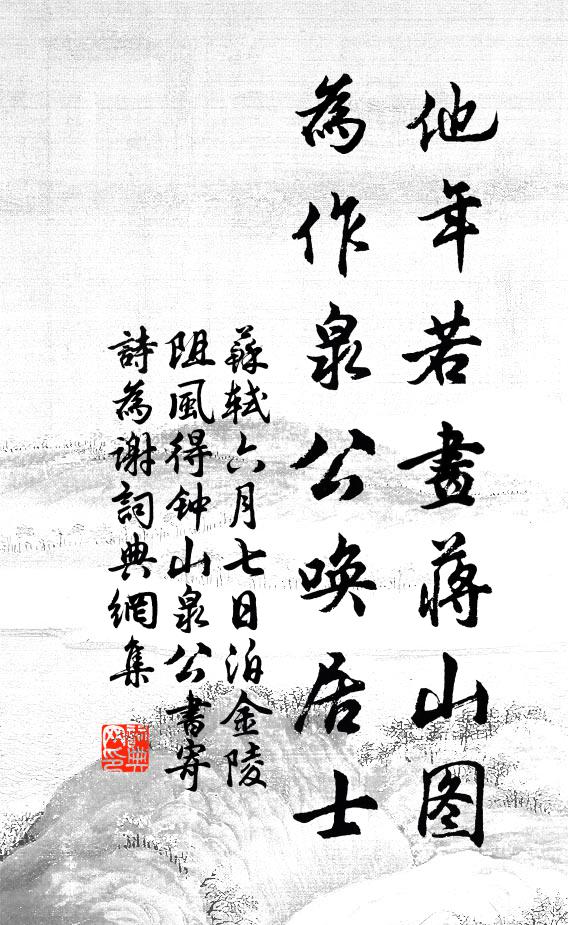 他年若畫蔣山图
為作泉公喚居士
蘇軾六月七日泊金陵
阻風得钟山泉公書寄
詩為謝詞典網集